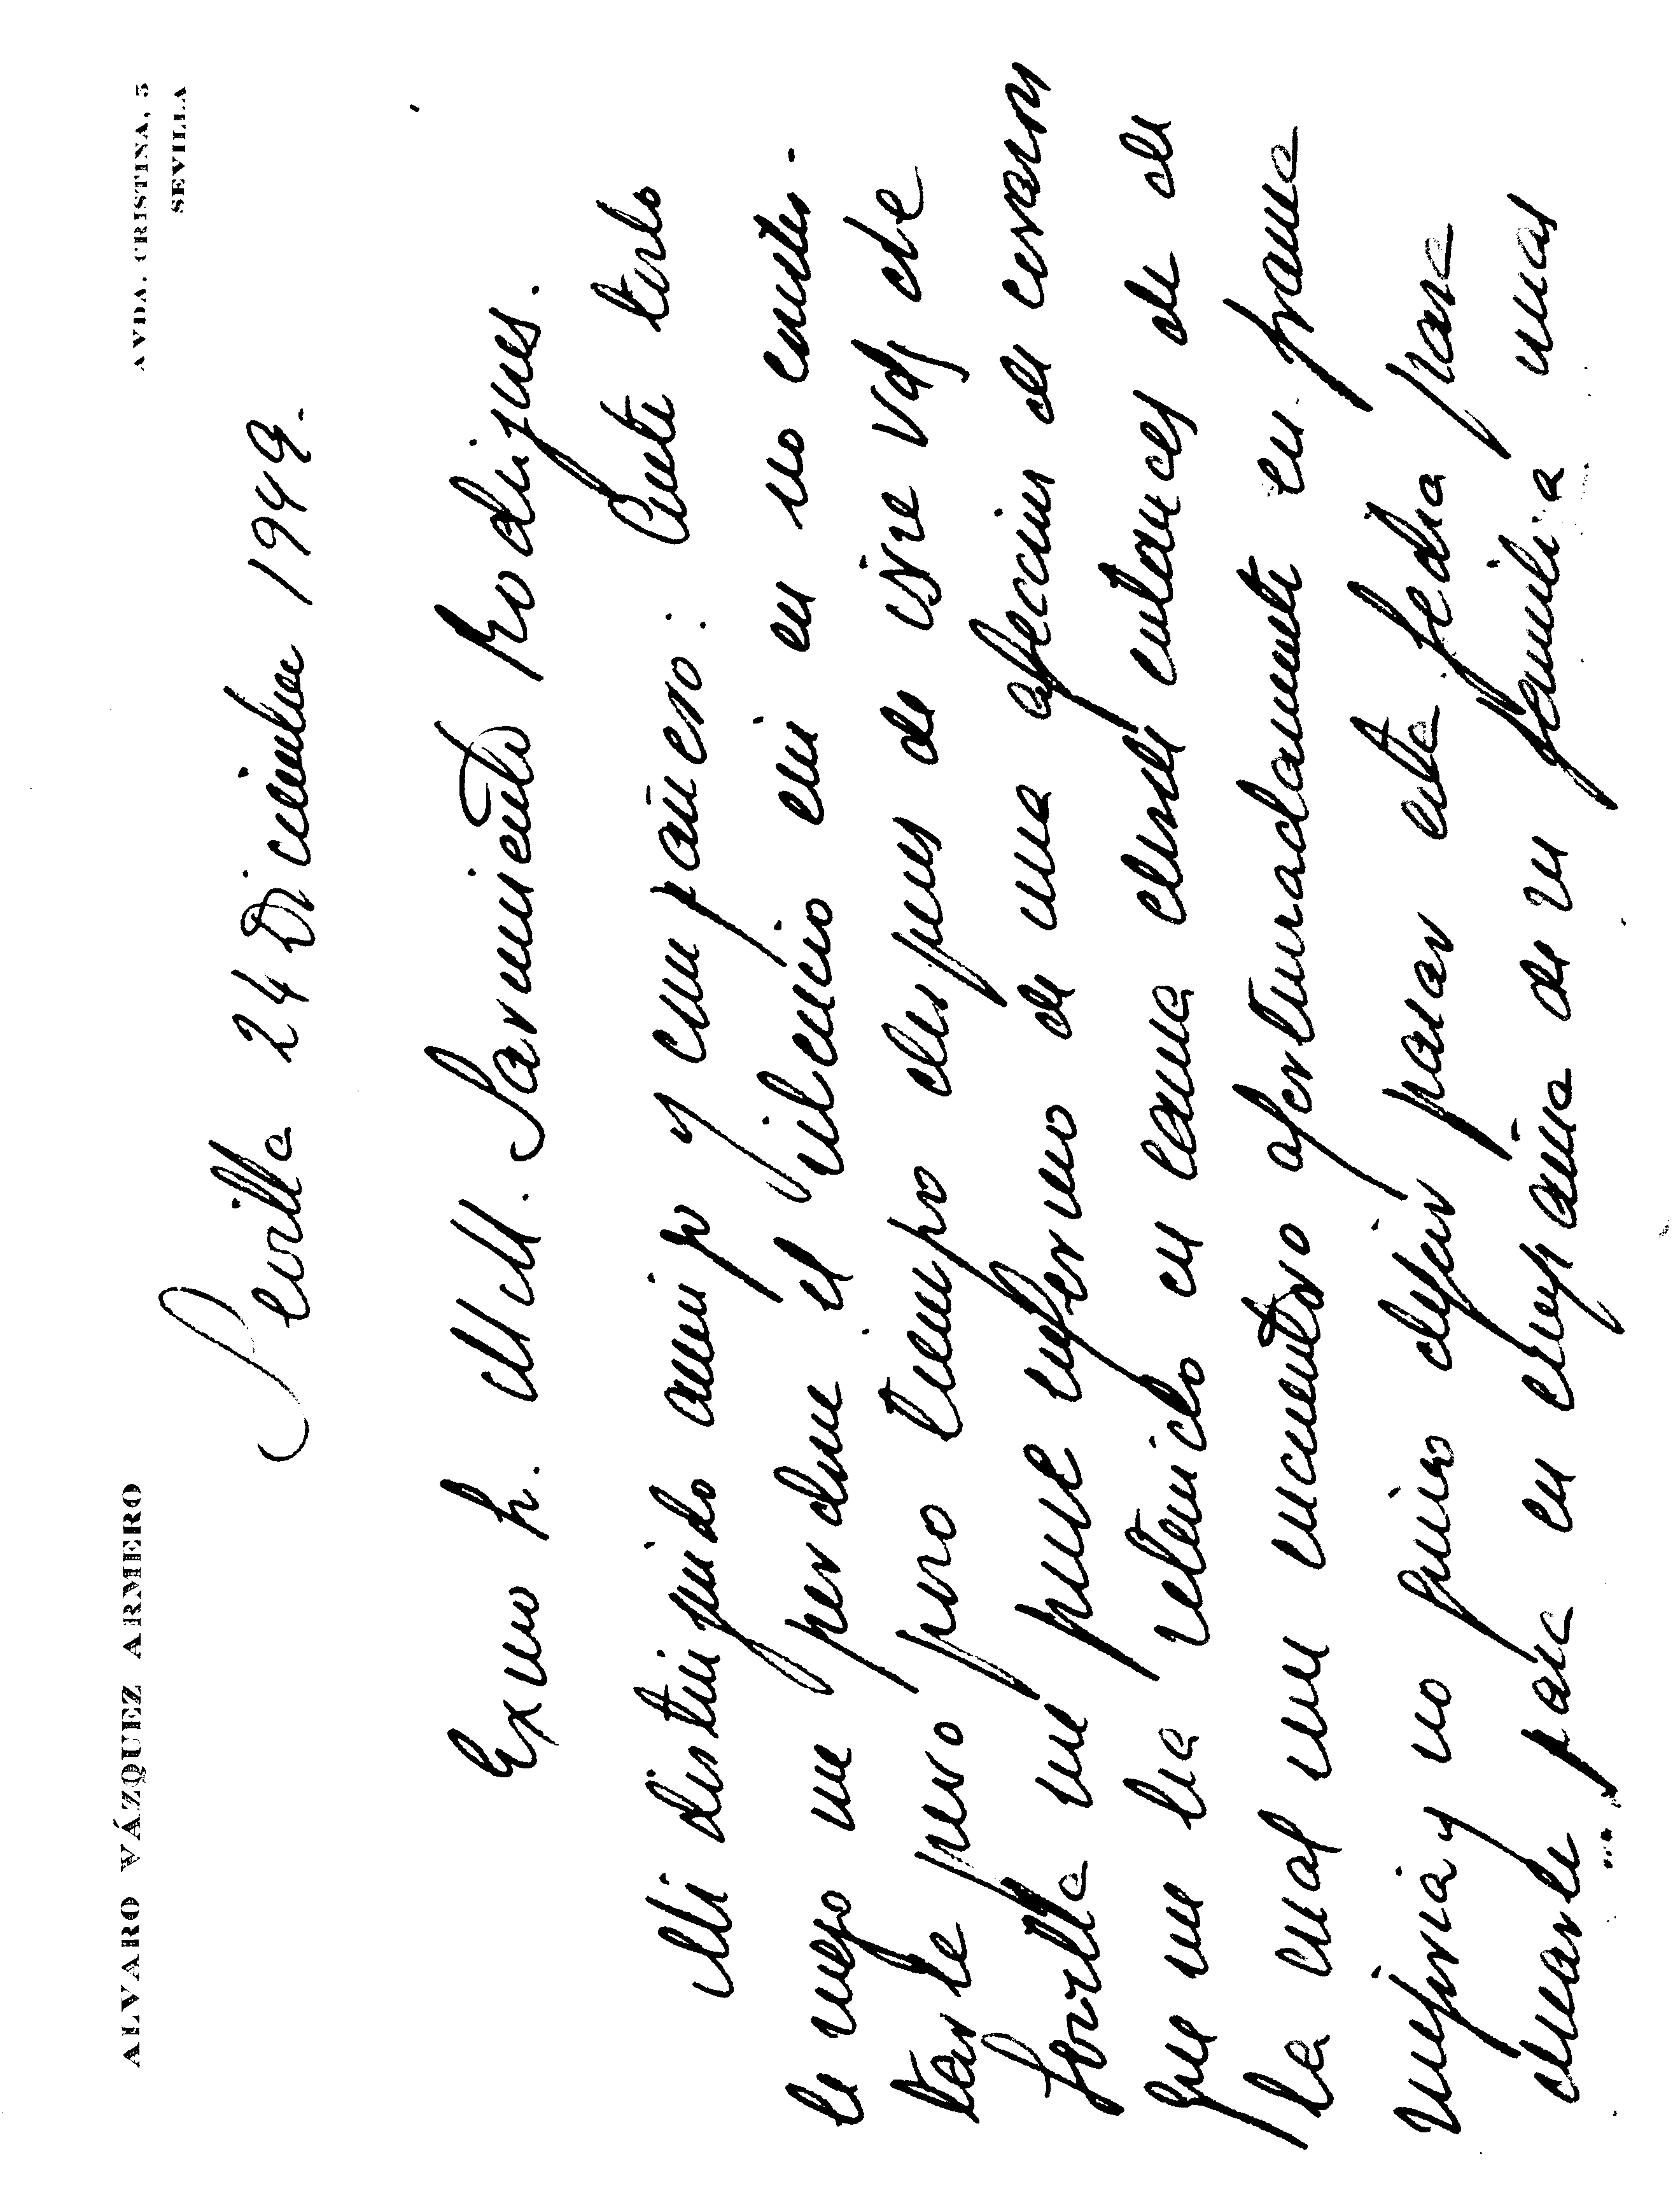 ALVARO VÁZQUEZ ARMERO
AVDA. CRISTINA, 5
SEVILLA
Sevilla 24 Diciembre 1949.
Exmo Sr. M. Sarmiento Rodigues.
Mi distinguido amigo y compañero: Ante todo
le ruego me perdone el silencio mio en no contes-
tarle pero poco tiempo despues de irse Vds de
Sevilla me puse enfermo de una afeccion de corazon
que me ha retenido en cama desde entonces de de
la cual me encuentro afortunadamente en franca
mejoria y no quiero dejar pasar esta fecha para
desearle pase en compañia de su familia unas